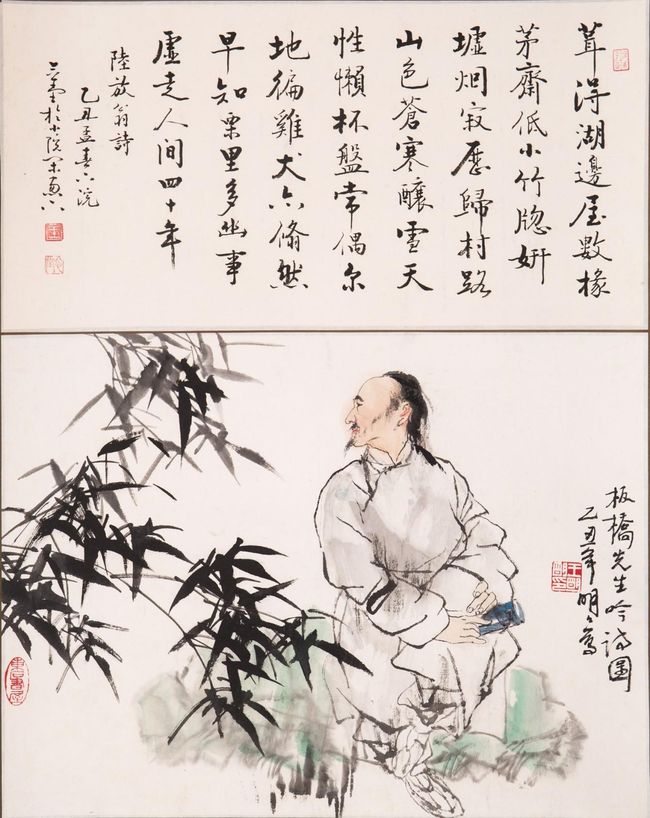 葺淂湖邊屋數椽
茅齋低小竹牕妍
墟烟寂歷歸村路
山色蒼寒釀雪天
性懶杯盤常偶尔
地徧雞犬亦翛然
早知栗里多幽事
虛走人间四十年
陸放翁詩
乙丑孟春
於小院
板橋先生吟詩圖
乙丑年明明寫
王明明印